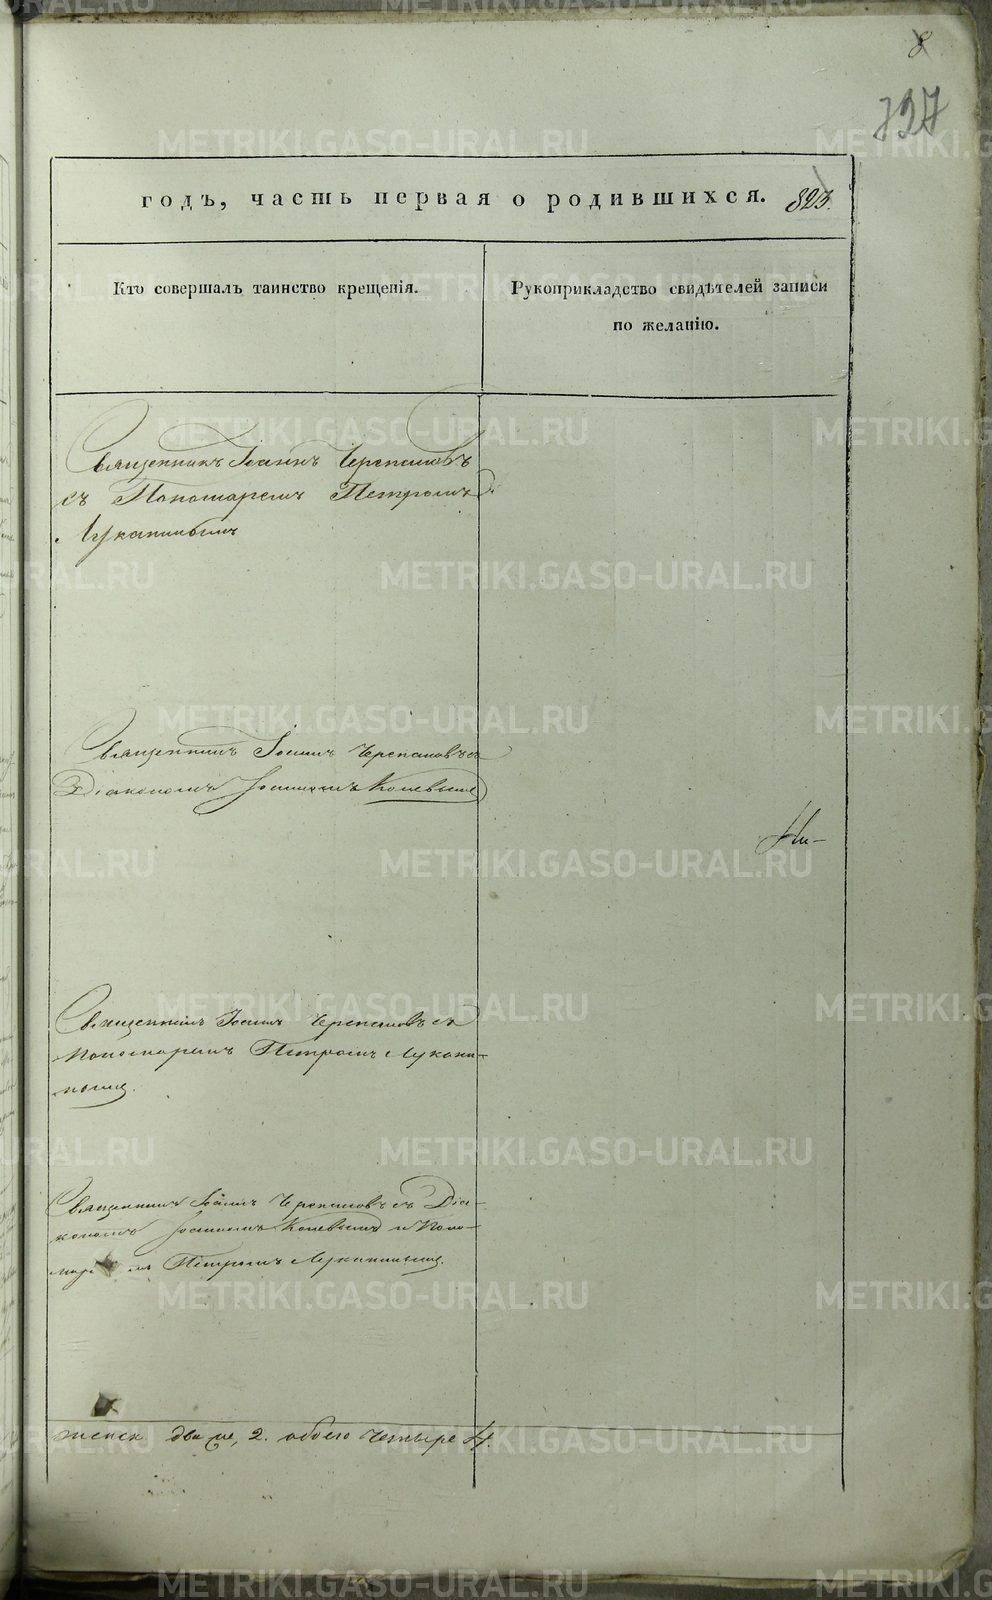 8
727
годъ, часть первая о родившихся. 823.
Кто совершалъ таинство крещенія.
Рукоприкладство свидѣтелей записи
по желанію.
Священникъ Іоаннъ Черепановъ
съ Пономаремъ Петромъ
Лукинымъ
Священникъ Іоаннъ Черепановъ съ
Діакономъ Іоанномъ
Ни-
Священникъ Іоаннъ Черепановъ съ
Пономаремъ Петромъ
Священникъ Іоаннъ Черепановъ съ Діа-
кономъ Іоанномъ и Поно-
Петромъ
женск. две 2. обоего Четыре 4.
METRIKI.GASO-URAL.RU